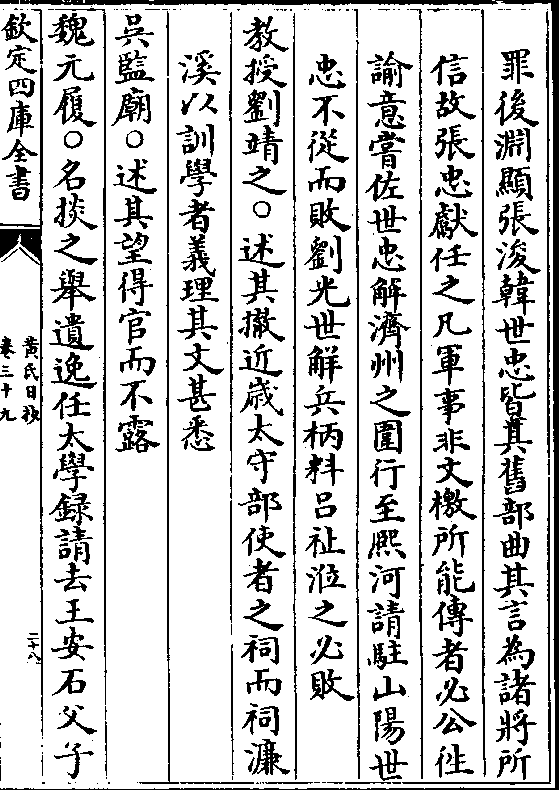 罪後淵顯張浚韓世忠皆其舊部曲其言為諸將所
信故張忠獻任之凡軍事非文檄所能傳者必公徃
諭意嘗佐世忠解濟州之圍行至熈河請駐山陽世
忠不從而敗劉光世解兵柄料吕祉涖之必敗
教授劉靖之○述其撤近歳太守部使者之祠而祠濂
溪以訓學者義理其文甚悉
吳監廟○述其望得官而不露
魏元履○名掞之舉遺逸任太學録請去王安石父子
欽定四庫全書
黄氏日抄
卷三十九
二十八